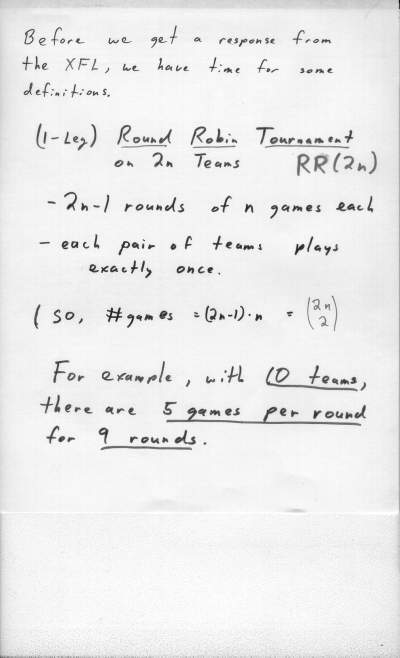 Before we get a response from
the XFL, we have time for some
definitions.
(1-Leg) Round Robin Tournament
on 2n Teams RR(2n)
- 2n-1 rounds of n games each
- each pair of teams plays
exactly once.
( so, #games = (2n-1)·n = (2n 2)
For example, with 10 teams,
there are 5 games per round
for 9 rounds.